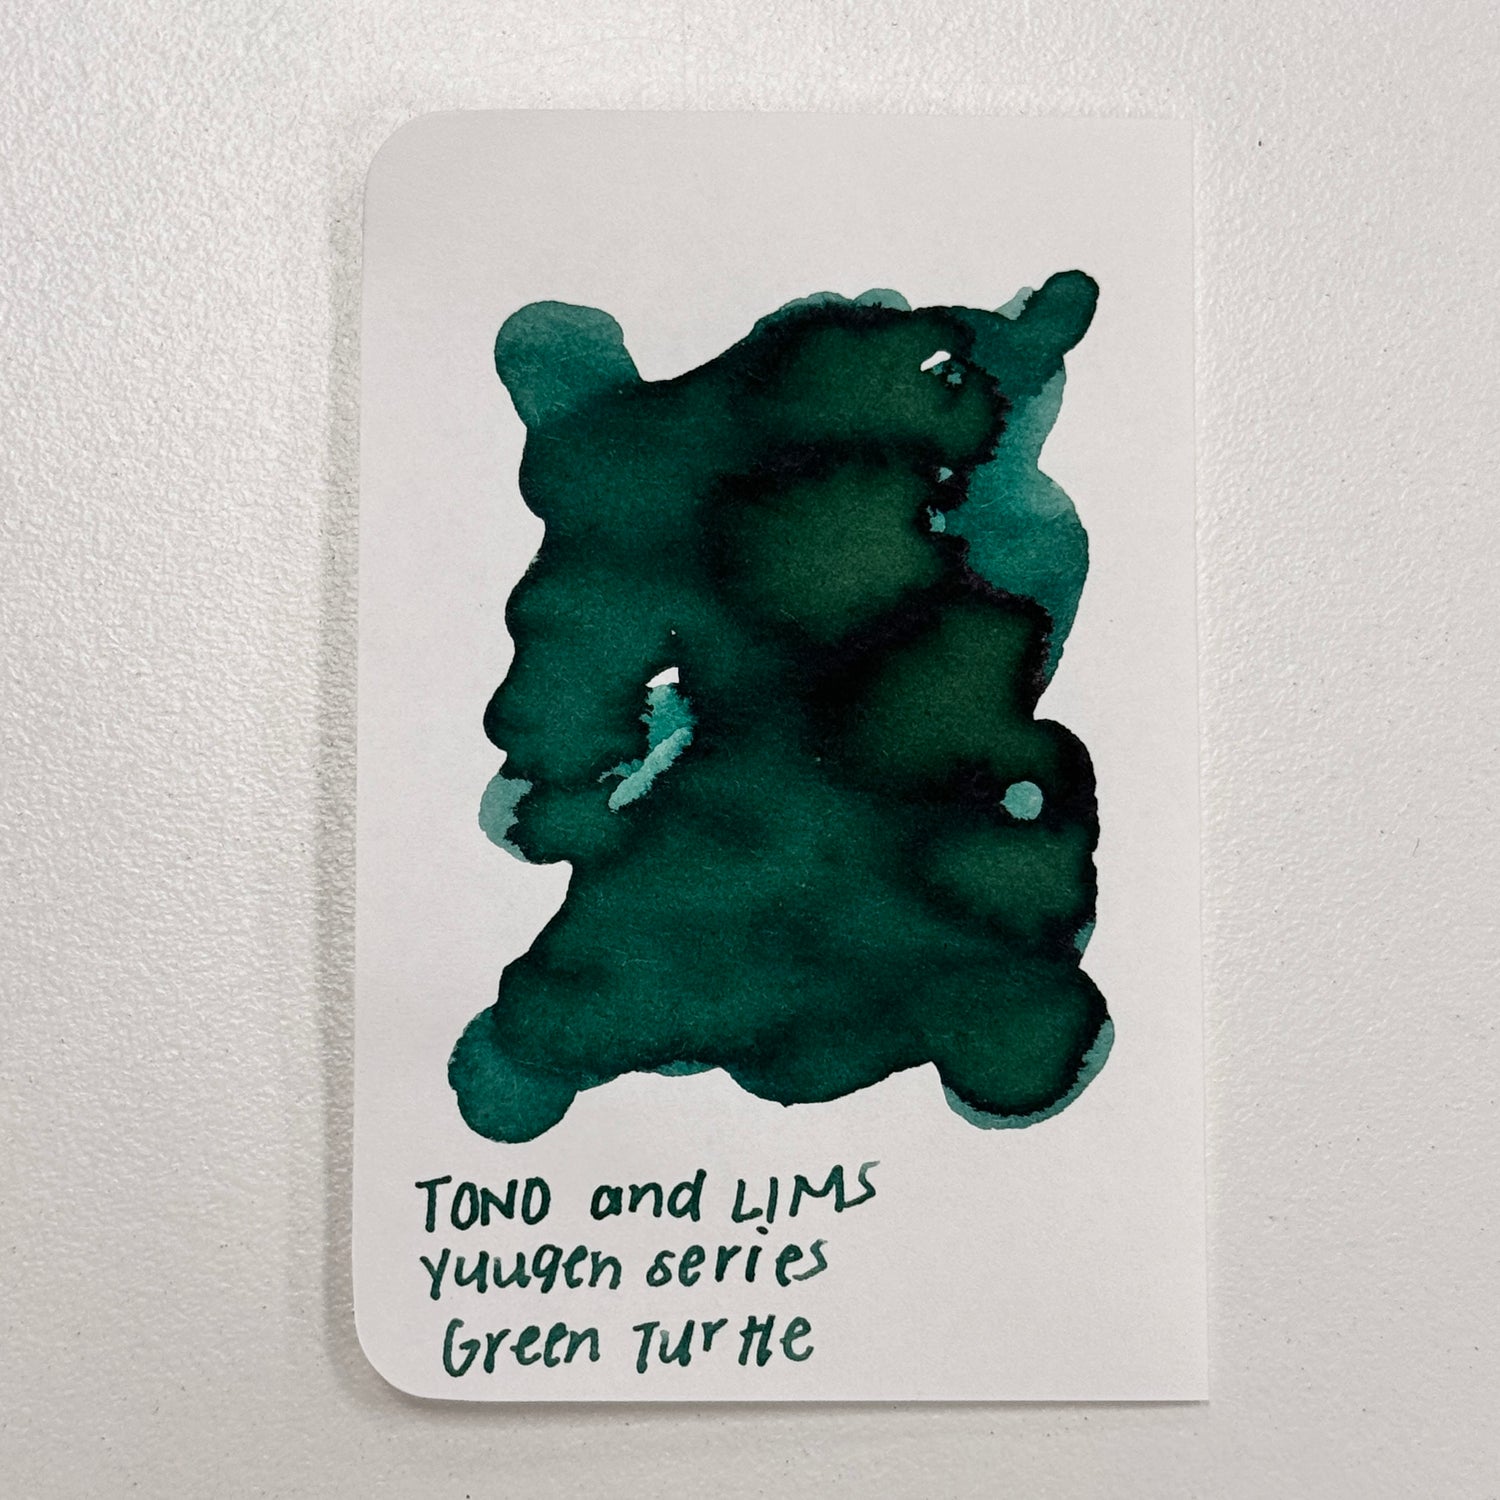 TONO and LIMS
Yuugen series
Green Turtle